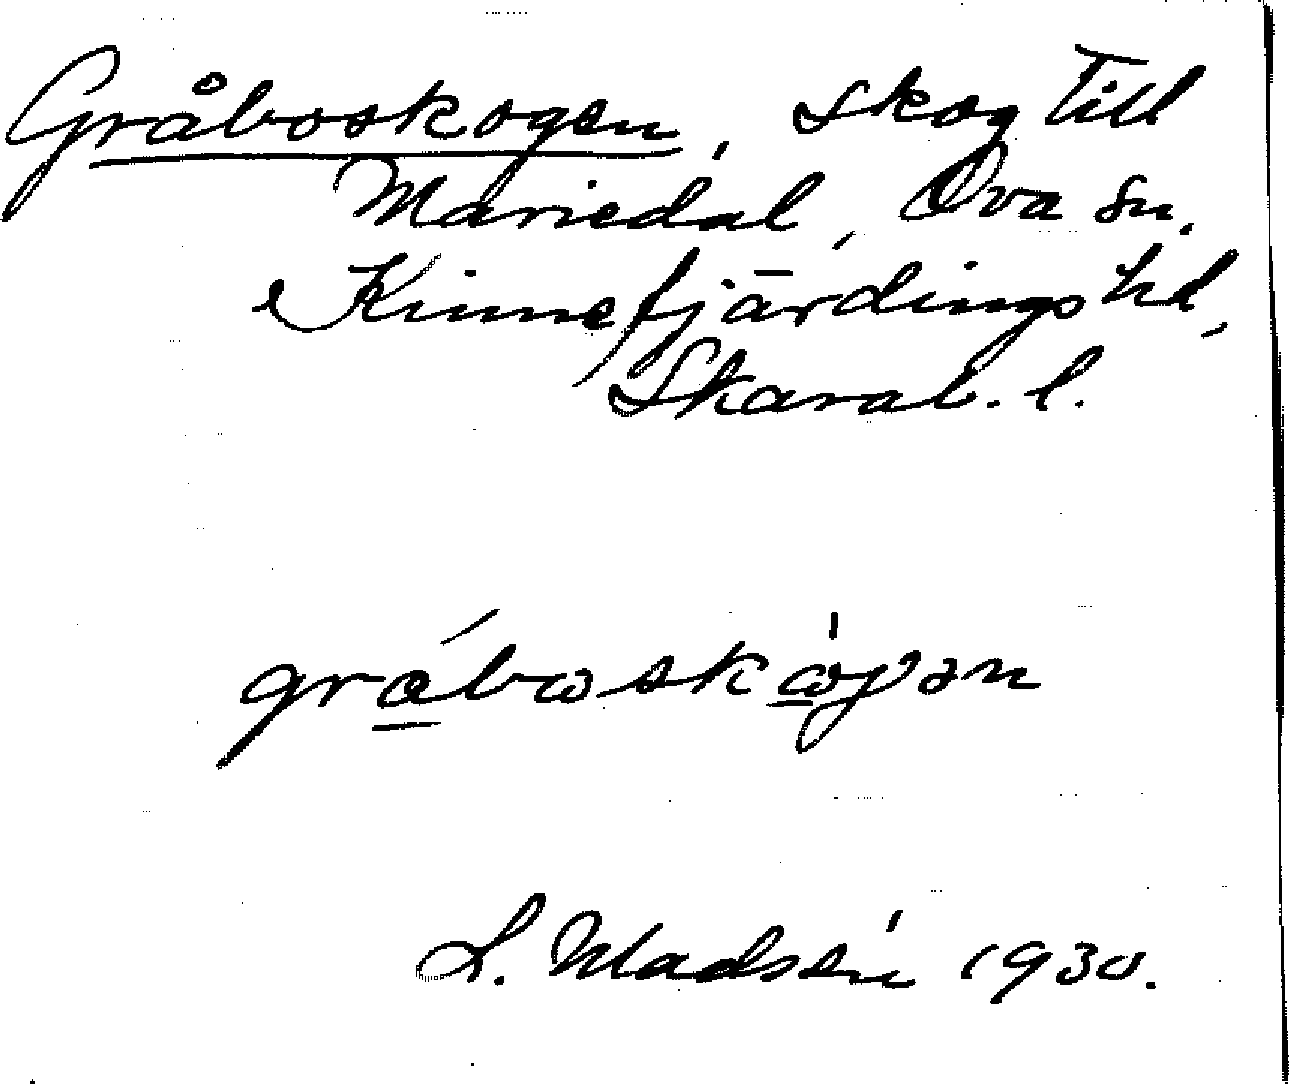 Gråboskogen, skog till
Mariedal, Ova sn.
Kinnefjärdings hd,
Skarab. l.
gråboskωγən
L. Madsén 1930.